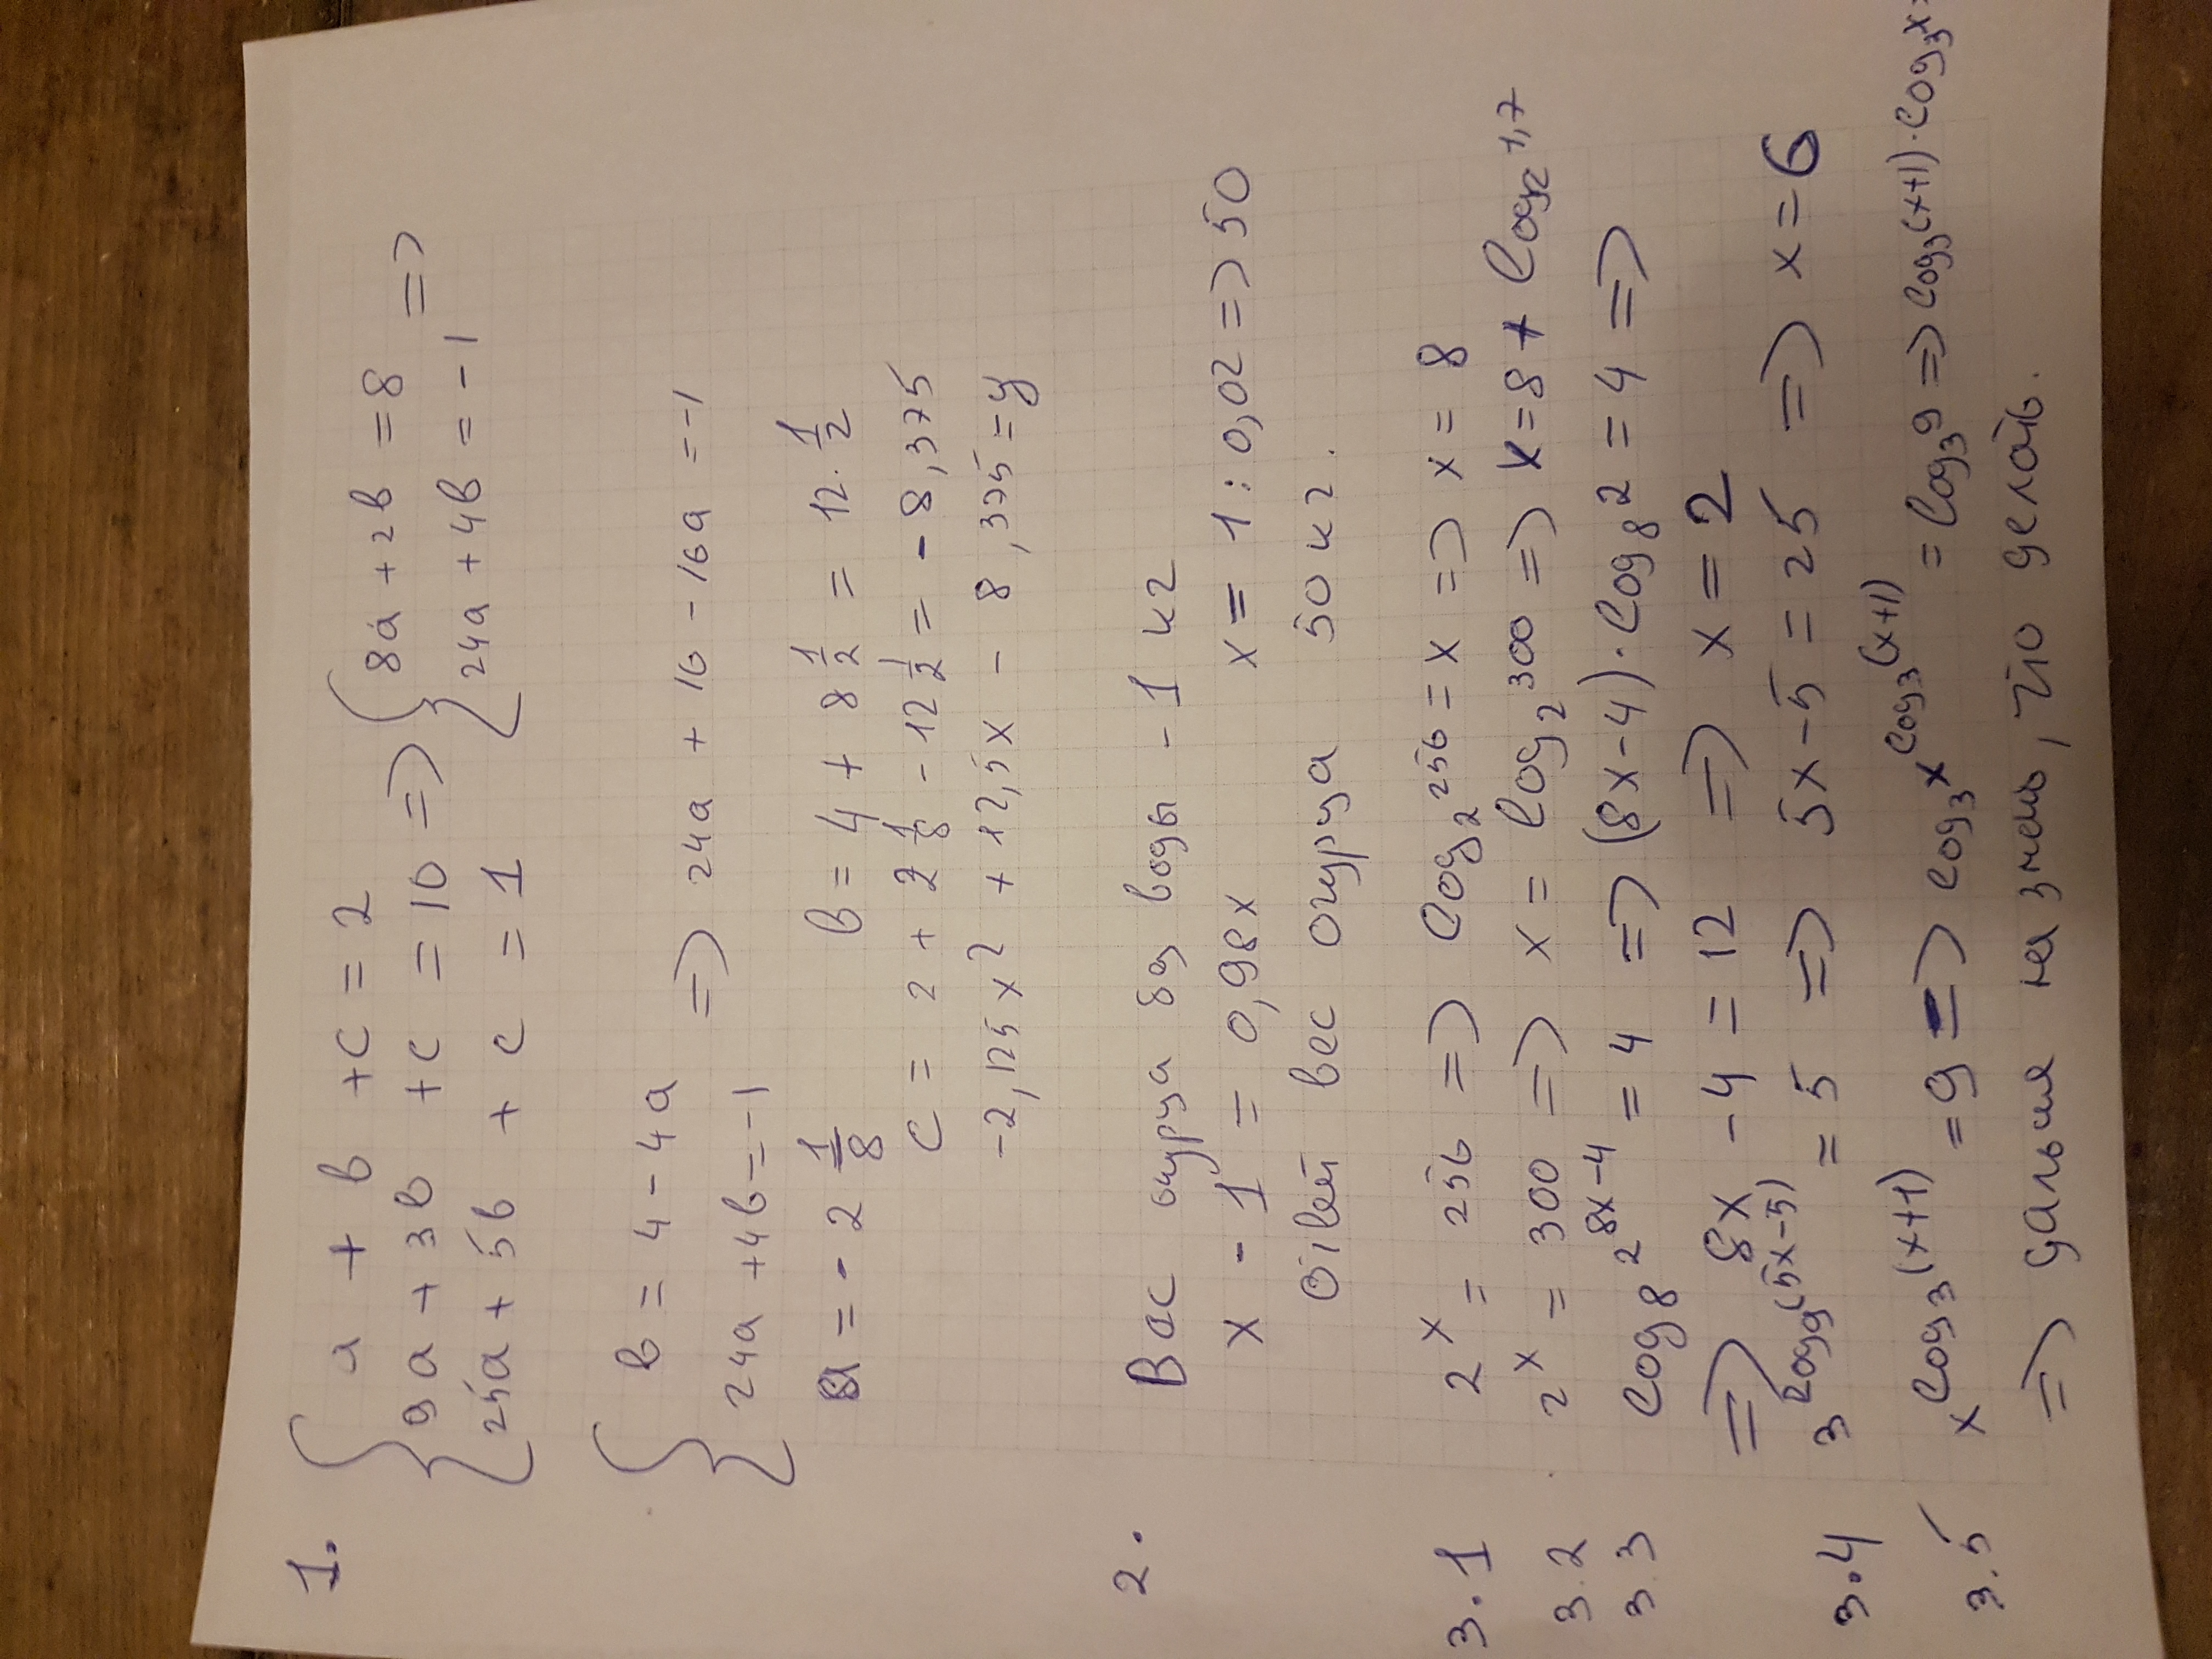 1. { a + b + c = 2
9a + 3b + c = 10 => { 8a + 2b = 8
25a + 5b + c = 1 24a + 4b = -1 =>
{ b = 4 - 4a
24a + 4b = -1 => 24a + 16 - 16a = -1
a = - 2 1/8 b = 4 + 8 1/2 = 12 1/2
c = 2 + 2 1/8 - 12 1/2 = - 8,375
-2,125x² + 12,5x - 8,375 = y
2. Вес огурца без воды - 1 кг
x - 1 = 0,98x x = 1 : 0,02 => 50
Ответ вес огурца 50 кг.
3.1 2^x = 256 => log₂ 256 = x => x = 8
3.2 2^x = 300 => x = log₂ 300 => x = 8 + log₂ 1,7
3.3 log₈ 2^(8x-4) = 4 => (8x-4)·log₈ 2 = 4 =>
=> 8x - 4 = 12 => x = 2
3.4 3^(log₉(5x-5)) = 5 => 5x-5 = 25 => x = 6
3.5 x^(log₃(x+1)) = 9 => log₃ x^(log₃(x+1)) = log₃ 9 => log₃(x+1)·log₃ x =
=> дальше не знаю, что делать.